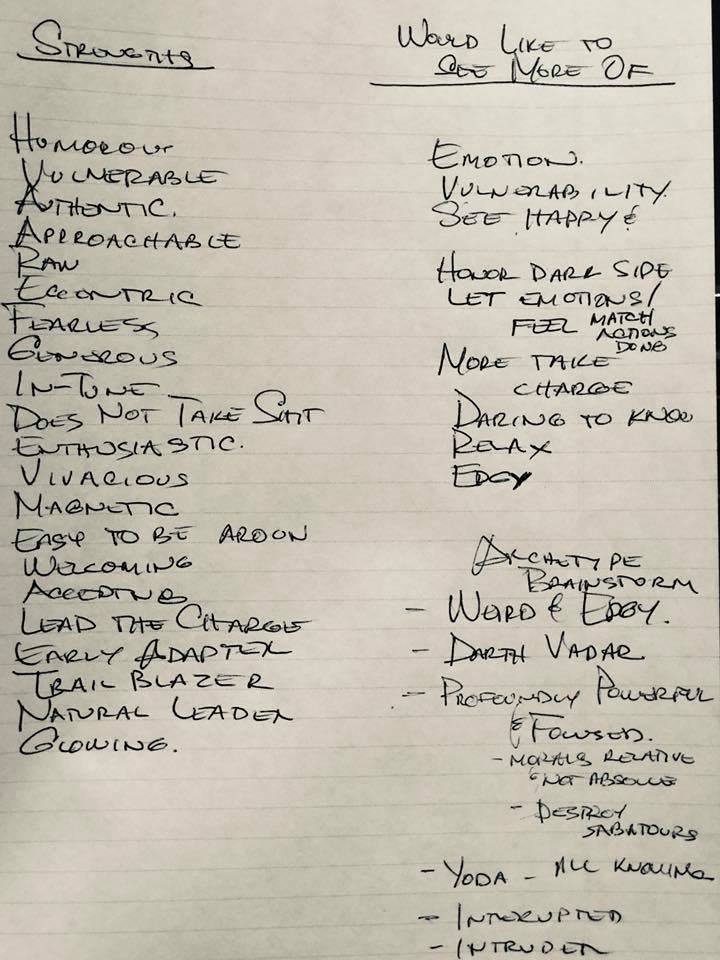 STRENGTHS
HOMOROUS
VULNERABLE
AUTHENTIC.
APPROACHABLE
RAW
ECCENTRIC
FEARLESS
GENEROUS
IN-TUNE
DOES NOT TAKE SHIT
ENTHUSIASTIC.
VIVACIOUS
MAGNETIC
EASY TO BE AROUN
WELCOMING
ACCEPTING
LEAD THE CHARGE
EARLY ADAPTER
TRAIL BLAZER
NATURAL LEADER
GLOWING.
WOULD LIKE TO
SEE MORE OF
EMOTION.
VULNERABILITY.
SEE HAPPY &
HONOR DARK SIDE
LET EMOTIONS/
FEEL MATCH
ACTIONS
DONE
MORE TAKE
CHARGE
DARING TO KNOW
RELAX
EDGY
ARCHETYPE
BRAINSTORM
- WEIRD & EDGY.
- DARTH VADAR.
- PROFOUNDLY POWERFUL
& FOCUSED.
- MORALS RELATIVE
& NOT ABSOLUE
- DESTROY
SABATOURS
- YODA - ALL KNOWING
- INTERUPTED
- INTRUDER